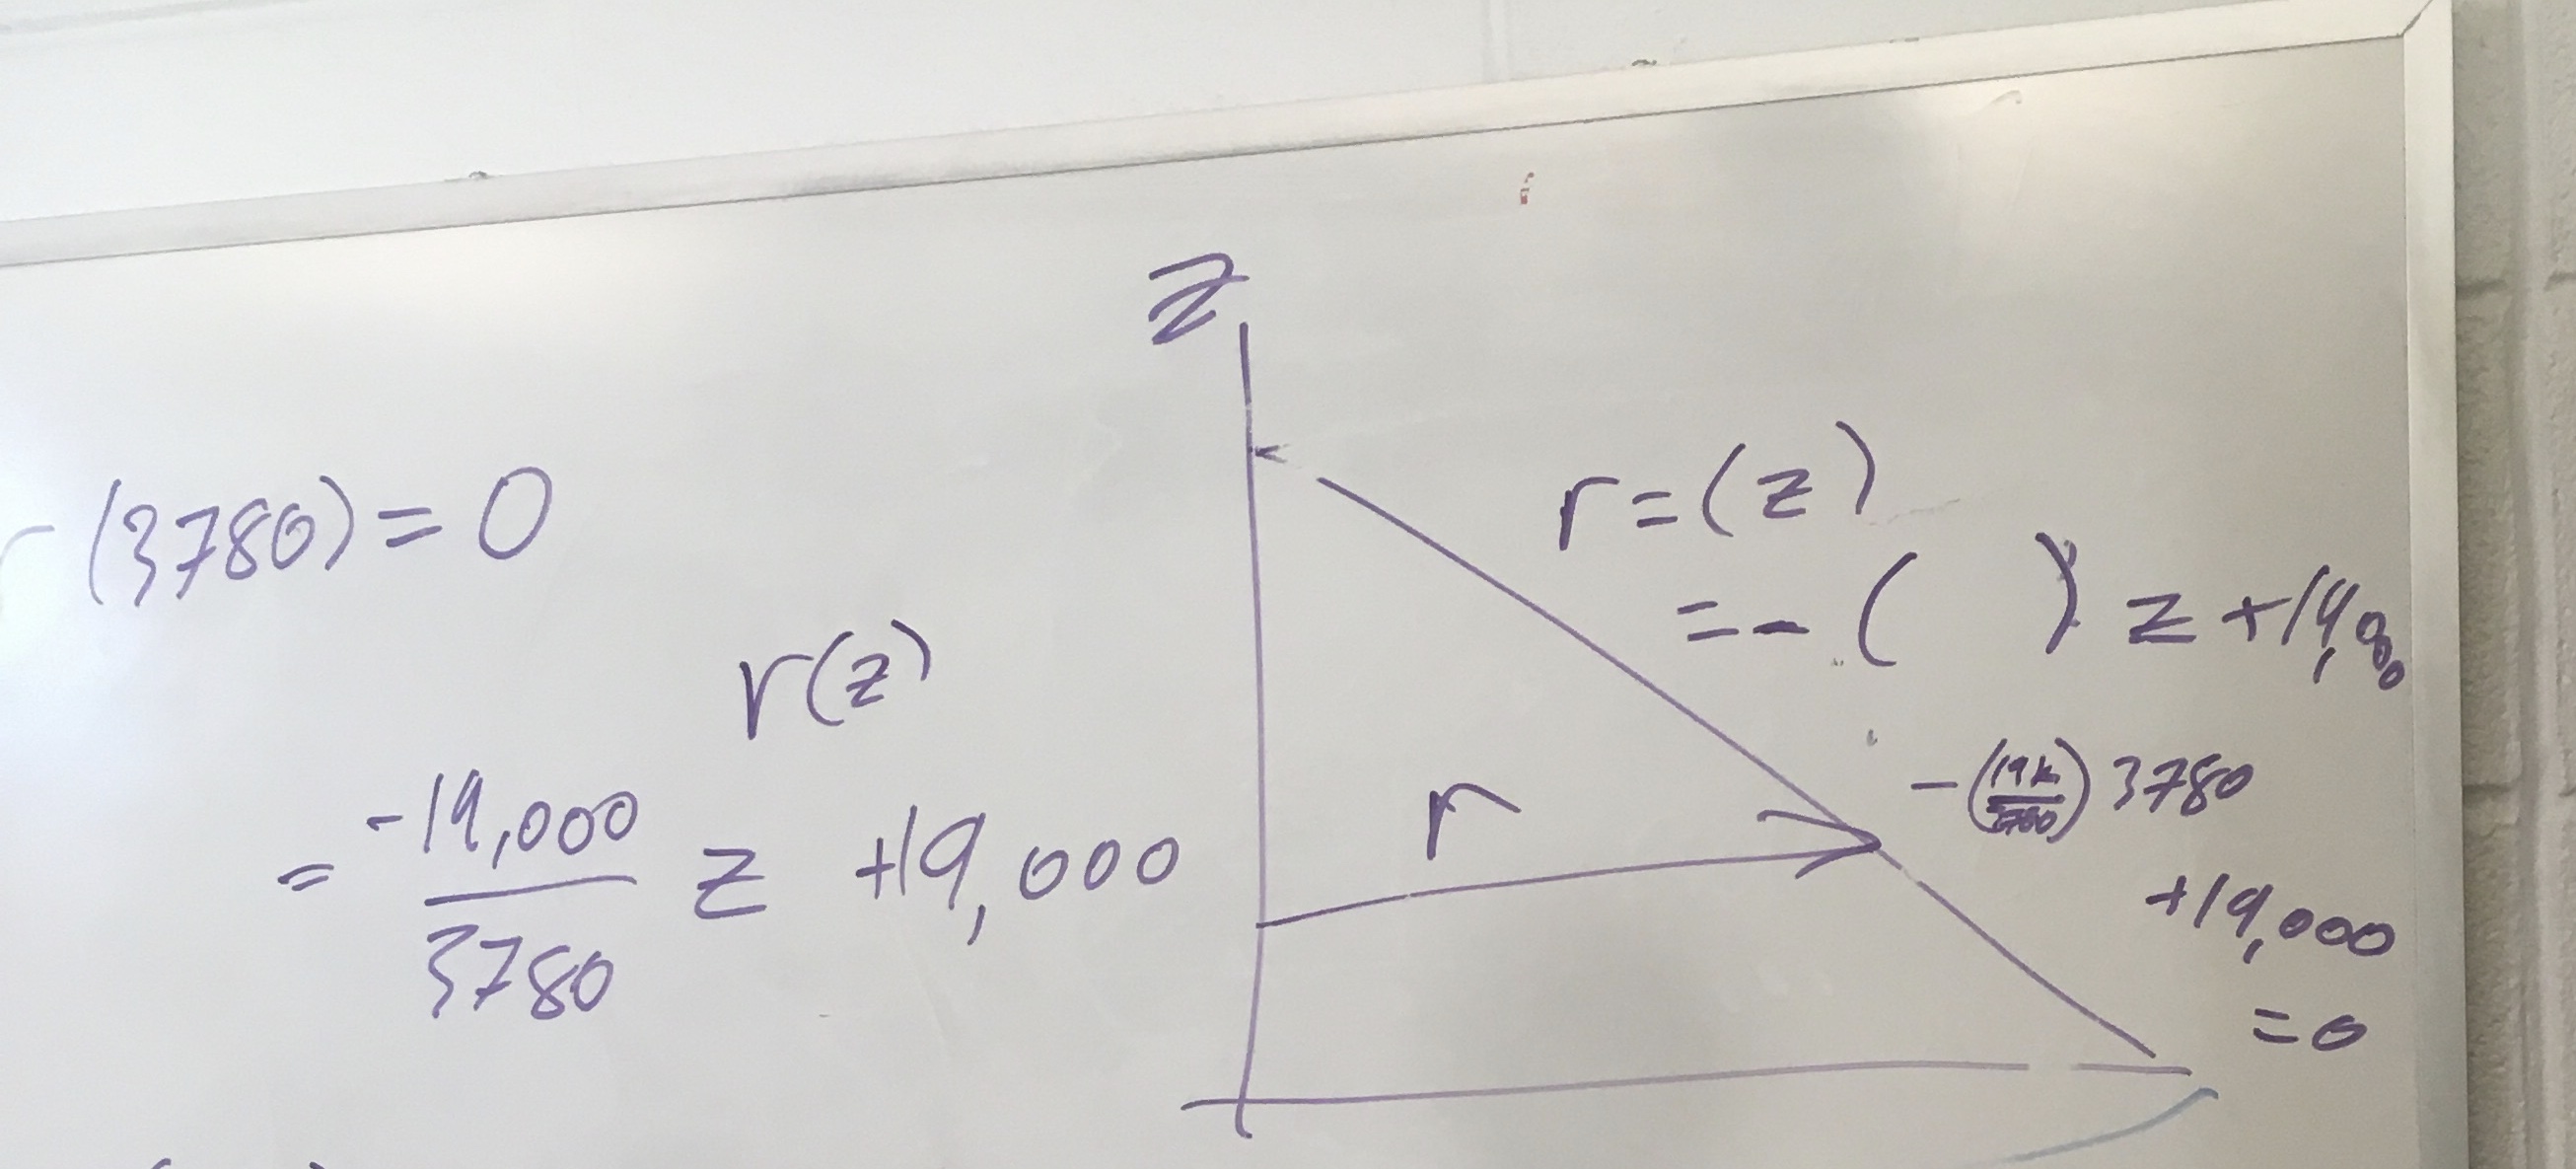 r(3780) = 0
r(z)
= -19,000/3780 z +19,000
z
r
r = (z)
= - ( ) z + 19,000
- (19k/3780) 3780
+19,000
= 0